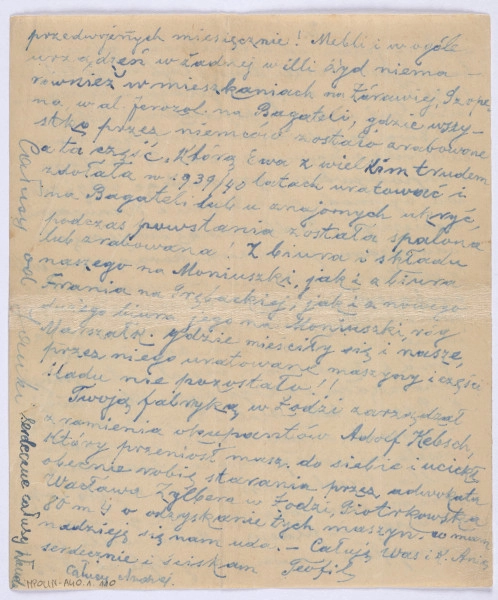 przedwojennych miesięcznie! Mebli i w ogóle
urządzeń w żadnej willi żyd niema –
również w mieszkaniach na Żórawiej, Szope-
na, w al. jerozol. na Bagateli, gdzie wszy-
stko przez niemców zostało zrabowane
a ta część, którą Ewa z wielkim trudem
zdołała w 1939/40 latach uratować i
na Bagateli lub u znajomych ukryć,
podczas powstania została spalona
lub zrabowana! Z biura i składu
naszego na Moniuszki, jak i z biura
Frania na Trębackiej, jak i z nowego
biura jego na Moniuszki, róg
Marszałk. gdzie mieściły się i nasze,
przez niego uratowane maszyny i części
śladu nie pozostało!!
Twoją fabryką w Łodzi zarządzał
z ramienia okupantów Adolf Hebsch,
który przeniósł masz. do siebie i uciekł,
obecnie robię starania przez adwokata
Wacława Zylbera w Łodzi, Piotrkowska
80 m 4 o odzyskanie tych maszyn. co mam
nadzieję się nam uda. – Całuję Was i K. Anię
serdecznie i ściskam Teofil
całusy
Całusy od
serdeczne całusy